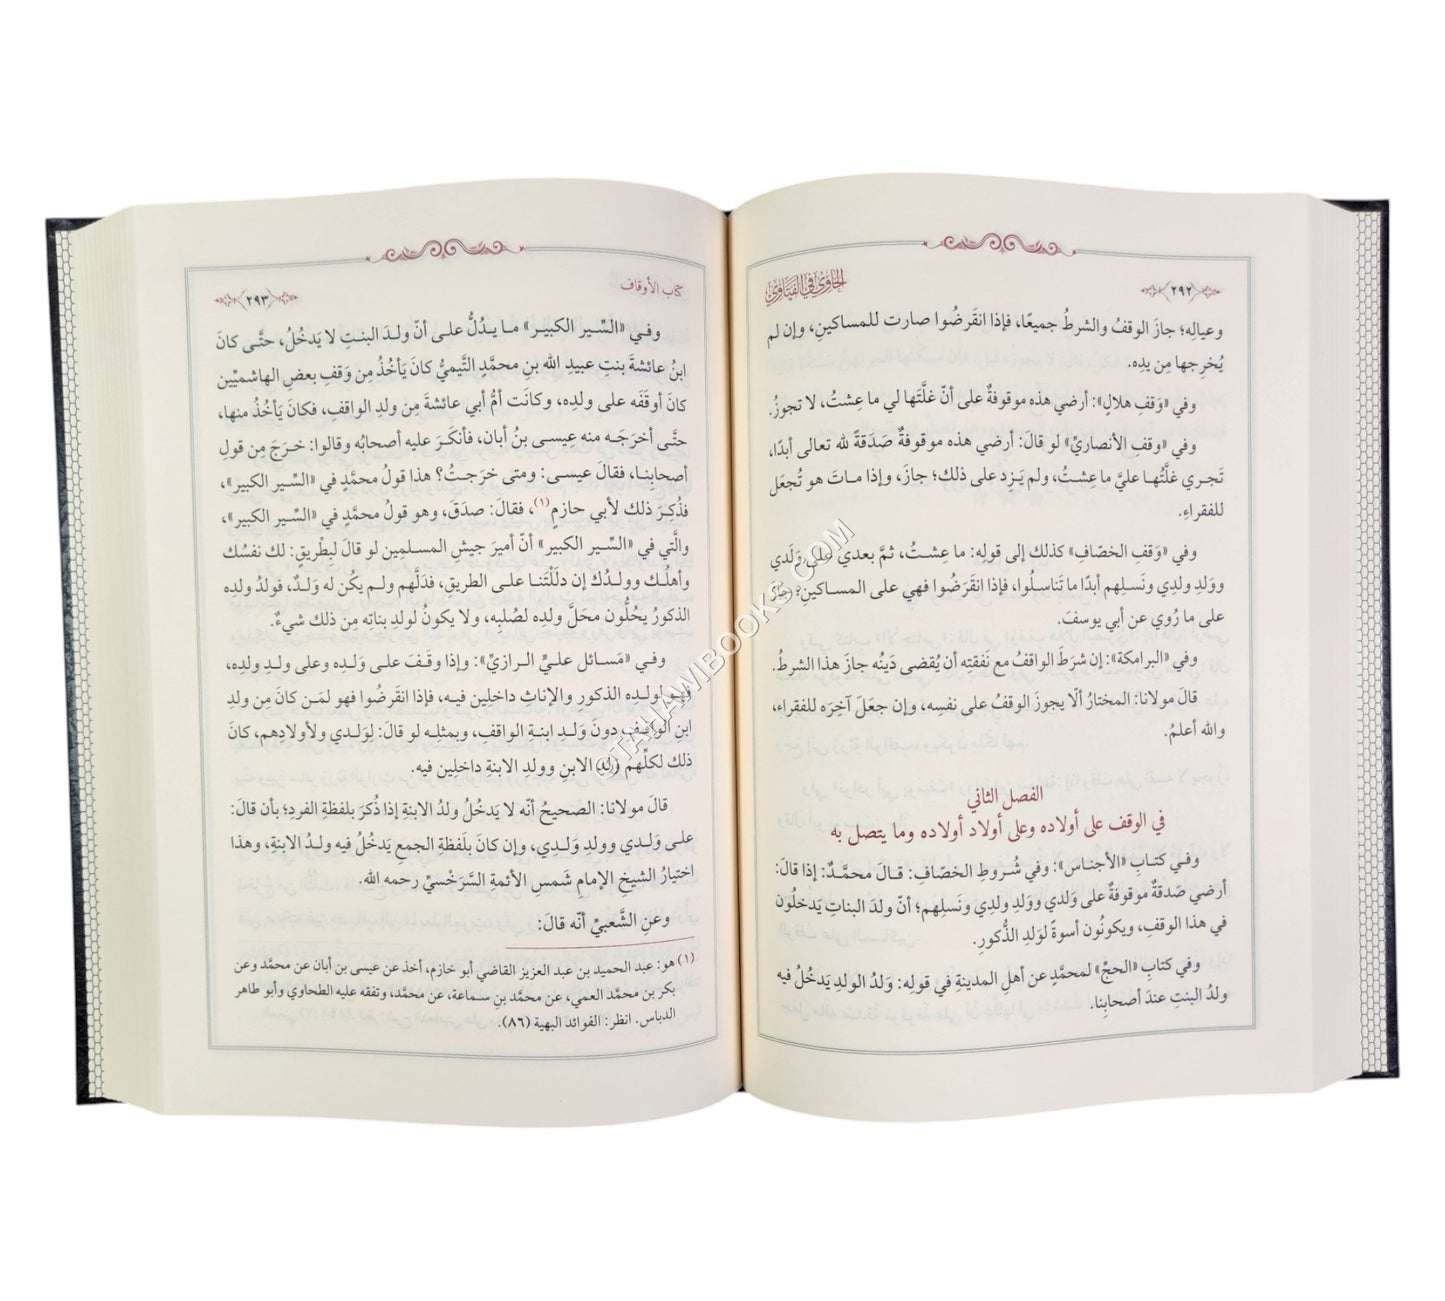 ﴿٢٩٢﴾
الحاوي في الفتاوى
وعيالِه؛ جازَ الوقفُ والشرطُ جميعًا، فإذا انقَرضُوا صارت للمساكينِ، وإن لم
يُخرِجها مِن يدِه.
وفي «وَقفِ هلالٍ»: أرضي هذه موقوفةٌ على أنّ غلَّتَها لي ما عِشتُ، لا تجوزُ.
وفي «وقفِ الأنصاريِّ» لو قالَ: أرضي هذه موقوفةٌ صَدَقةً لله تعالى أبدًا،
تَجري غلَّتُها عليَّ ما عِشتُ، ولم يَزِد على ذلك؛ جازَ، وإذا ماتَ هو تُجعَل
للفقراءِ.
وفي «وَقفِ الخصّافِ» كذلك إلى قولِه: ما عِشتُ، ثمَّ بعدي على وَلَدي
وولدِ ولدِي ونَسلِهم أبدًا ما تَناسلُوا، فإذا انقَرَضُوا فهي على المساكينِ؛ جازَ
على ما رُوي عن أبي يوسفَ.
وفي «البرامكة»: إن شرَطَ الواقفُ مع نَفقتِه أن يُقضى دَينُه جازَ هذا الشرطُ.
قالَ مولانا: المختارُ ألّا يجوزَ الوقفُ على نفسِه، وإن جعَلَ آخِرَه للفقراء،
والله أعلمُ.
الفصل الثاني
في الوقف على أولاده وعلى أولاد أولاده وما يتصل به
وفي كتابِ «الأجناس»: وفي شُروطِ الخصّافِ: قالَ محمَّدٌ: إذا قالَ:
أرضي صَدقةٌ موقوفةٌ على وَلدي ووَلدِ ولدِي ونَسلِهم؛ أنّ ولدَ البناتِ يَدخلُون
في هذا الوقفِ، ويكونُون أسوةً لوَلدِ الذُّكورِ.
وفي كتابِ «الحجِّ» لمحمَّدٍ عن أهلِ المدينةِ في قولِه: وَلدُ الولدِ يَدخُلُ فيه
ولدُ البنتِ عندَ أصحابِنا.
كتاب الأوقاف
﴿٢٩٣﴾
وفي «السِّير الكبير» ما يدُلُّ على أنّ ولدَ البنتِ لا يَدخُلُ، حتَّى كانَ
ابنُ عائشةَ بنتِ عبيدِ الله بنِ محمَّدٍ التَّيميُّ كانَ يَأخُذُ مِن وَقفِ بعضِ الهاشميِّين
كانَ أوقَفَه على ولدِه، وكانَت أمُّ أبي عائشةَ مِن ولدِ الواقفِ، فكانَ يَأخُذُ منها،
حتَّى أخرَجَه منه عِيسى بنُ أبان، فأنكَرَ عليه أصحابُه وقالوا: خرَجَ مِن قولِ
أصحابِنا، فقالَ عيسى: ومتى خرَجتُ؟ هذا قولُ محمَّدٍ في «السِّير الكبير»،
فذُكِرَ ذلك لأبي حازمٍ(١)، فقالَ: صدَقَ، وهو قولُ محمَّدٍ في «السِّير الكبير»،
والَّتي في «السِّير الكبير» أنّ أميرَ جيشِ المسلمِين لو قالَ لبِطْريقٍ: لك نفسُك
وأهلُك وولدُك إن دلَلْتَنا على الطريقِ، فدَلَّهم ولم يكُن له وَلدٌ، فولدُ ولدِه
الذكورُ يحُلُّون محَلَّ ولدِه لصُلبِه، ولا يكونُ لولدِ بناتِه مِن ذلك شيءٌ.
وفي «مَسائل عليٍّ الرازيِّ»: وإذا وقَفَ على وَلدِه وعلى ولدِ ولدِه،
فهو لولدِه الذكورِ والإناثِ داخلِين فيه، فإذا انقَرضُوا فهو لمَن كانَ مِن ولدِ
ابنِ الواقفِ دونَ وَلدِ ابنةِ الواقفِ، وبمثلِه لو قالَ: لوَلدي ولأولادِهم، كانَ
ذلك لكلِّهم ولدِ الابنِ وولدِ الابنةِ داخلِين فيه.
قالَ مولانا: الصحيحُ أنّه لا يَدخُلُ ولدُ الابنةِ إذا ذُكرَ بلفظةِ الفردِ؛ بأن قالَ:
على وَلَدي وولدِ وَلَدِي، وإن كانَ بلَفظةِ الجمعِ يَدخُلُ فيه ولدُ الابنةِ، وهذا
اختيارُ الشيخِ الإمامِ شَمسِ الأئمةِ السَّرَخْسيِّ رحمه الله.
وعنِ الشَّعبيِّ أنّه قالَ:
(١) هو: عبد الحميد بن عبد العزيز القاضي أبو خازم، أخذ عن عيسى بن أبان عن محمَّد وعن
بكر بن محمَّد العمي، عن محمَّد بن سماعة، عن محمَّد، وتفقه عليه الطحاوي وأبو طاهر
الدباس. انظر: الفوائد البهية (٨٦).
© TAHAWIBOOKS.COM